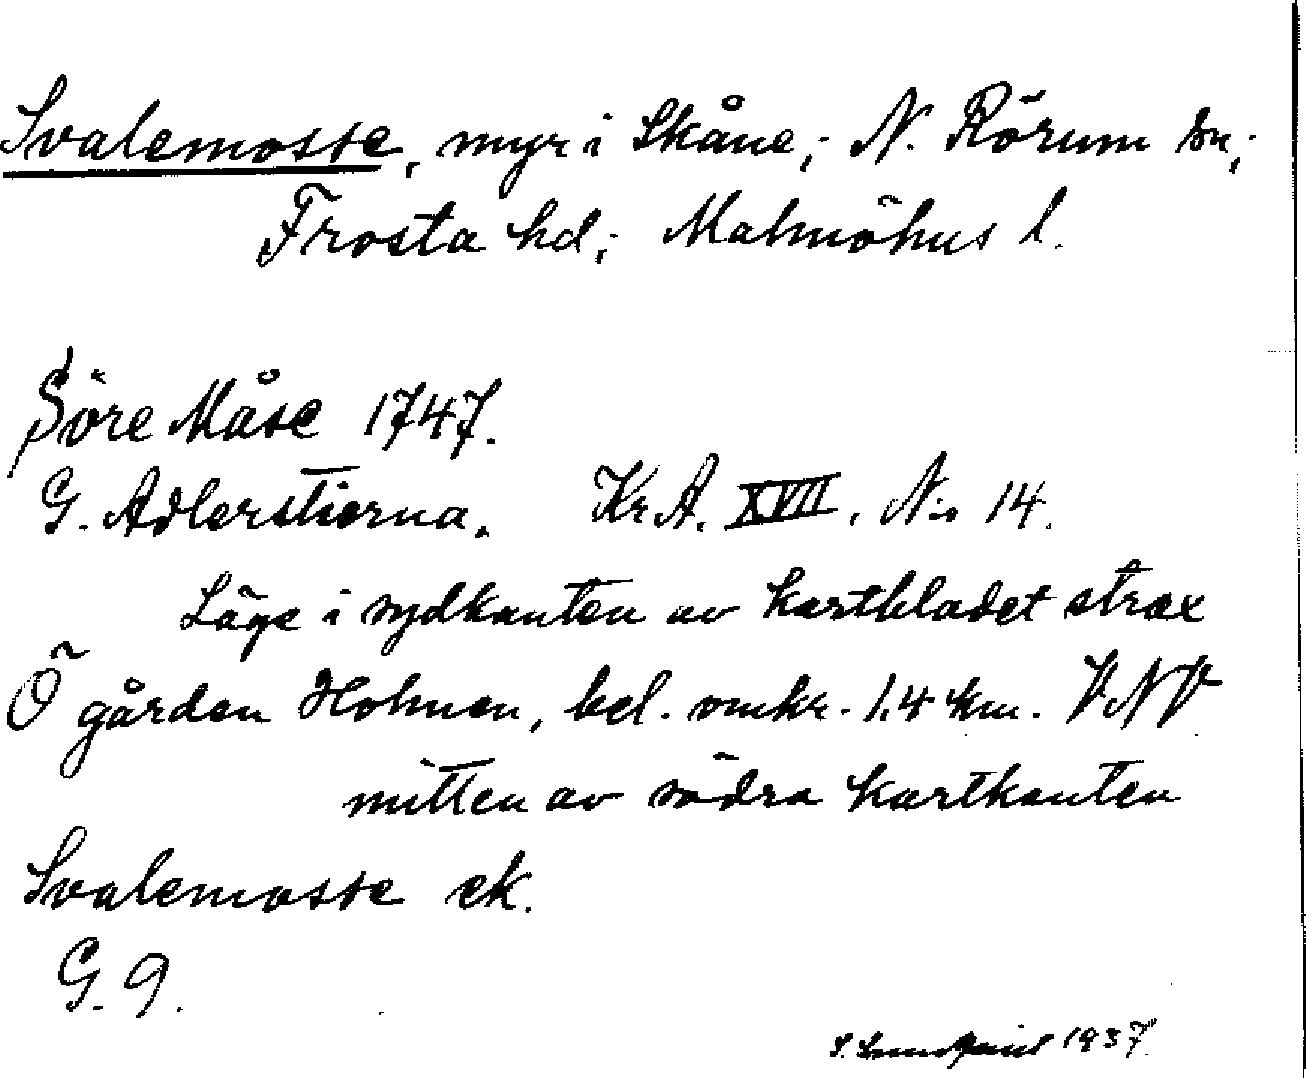 Svalemosse, myr i Skåne; N. Rörum sn;
Frosta hd; Malmöhus l.
Söre Måse 1747.
G. Adlerstierna. Kr A. XVII. N:o 14.
Läge i sydkanten av kartbladet strax
Ö gården Holmen, bel. omkr. 1.4 km. VNV
mitten av södra kartkanten
Svalemosse ek.
G. 9.
S. Lundquist 1937.